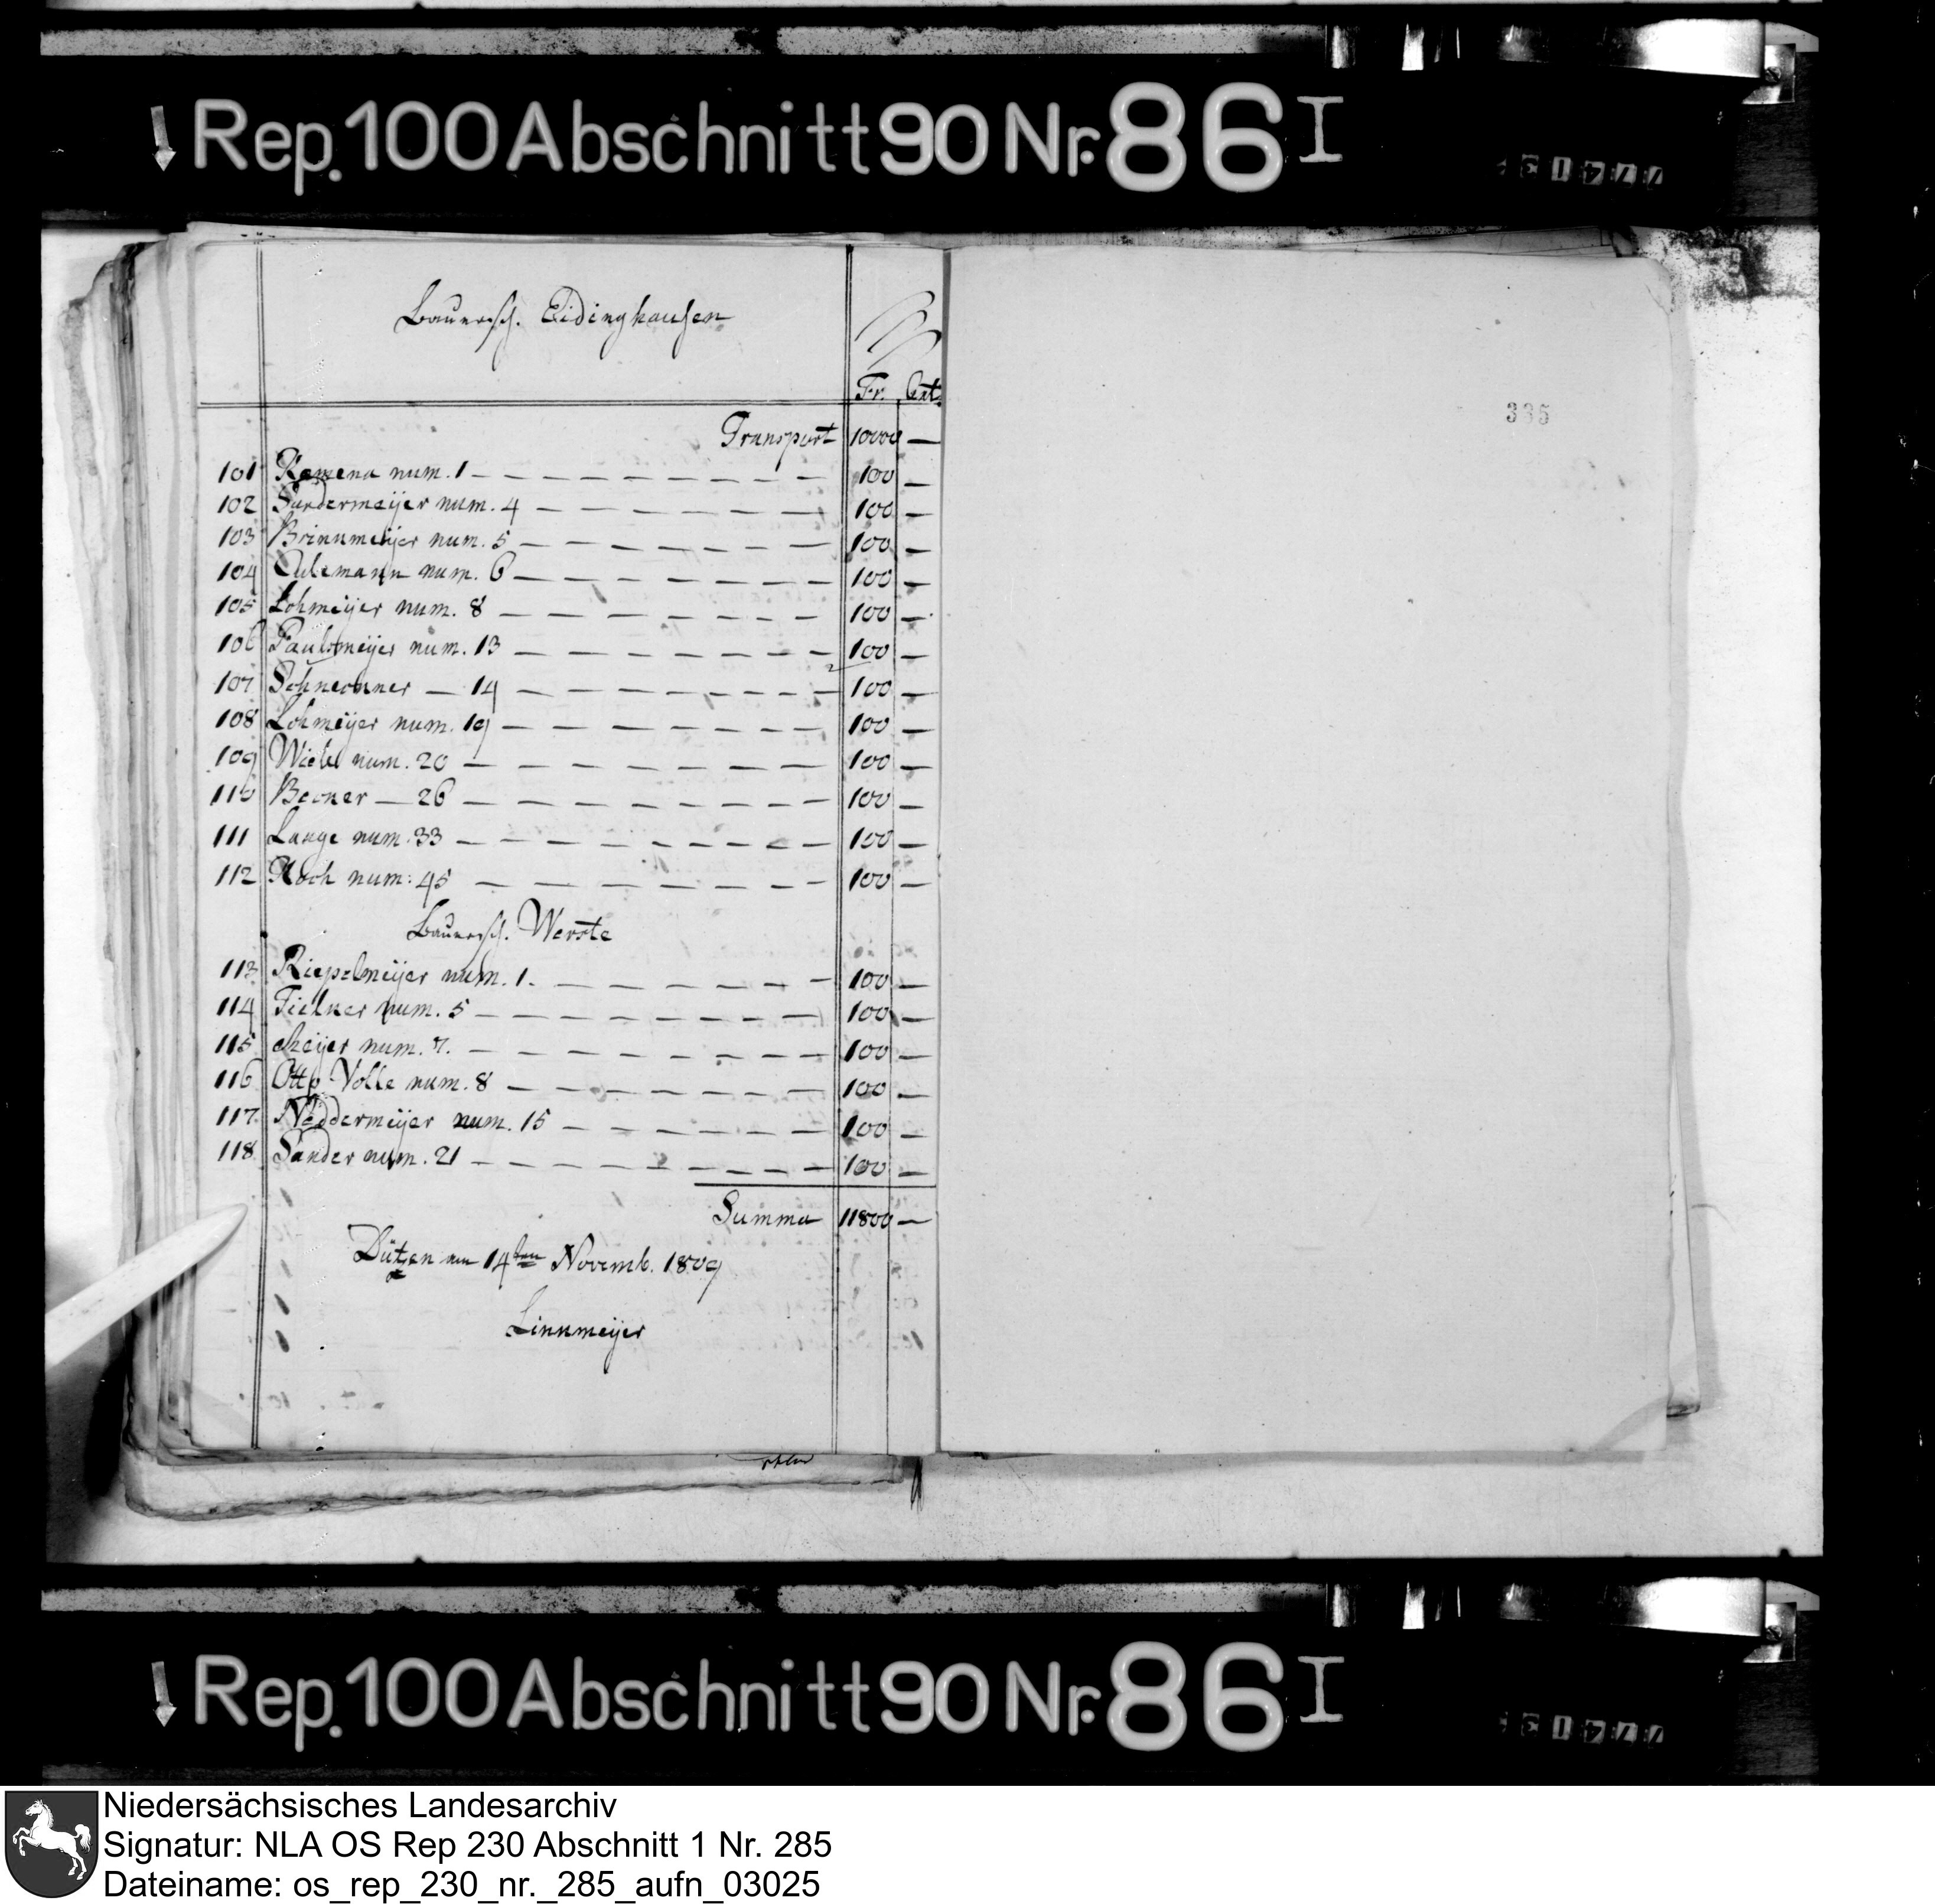 Rep. 100 Abschnitt 90 Nr. 86 I
Bauersch. Eidinghausen
Fr. Cnt.
335
Transport 10000 —
101 Kamena num. 1 — 100 —
102 Sundermeijer num. 4 — 100 —
103 Brinnmeijer num. 5 — 100 —
104 Culemann num. 6 — 100 —
105 Lohmeijer num. 8 — 100 —
106 Paulsmeijer num. 13 — 100 —
107 — 14 — 100 —
108 Lohmeijer num. 19 — 100 —
109 num. 20 — 100 —
110 — 26 — 100 —
111 Lange num. 33 — 100 —
112 Koch num: 45 — 100 —
Bauersch. Werste
113 Riepelmeijer num. 1. — 100 —
114 num. 5 — 100 —
115 Meijer num. 7. — 100 —
116 Otto Volle num. 8 — 100 —
117 Neddermeijer num. 15 — 100 —
118 Sander num. 21 — 100 —
Summa 11800 —
Dützen am 14ten Novemb. 1809
Linnmeijer
Rep. 100 Abschnitt 90 Nr. 86 I
Niedersächsisches Landesarchiv
Signatur: NLA OS Rep 230 Abschnitt 1 Nr. 285
Dateiname: os_rep_230_nr._285_aufn_03025